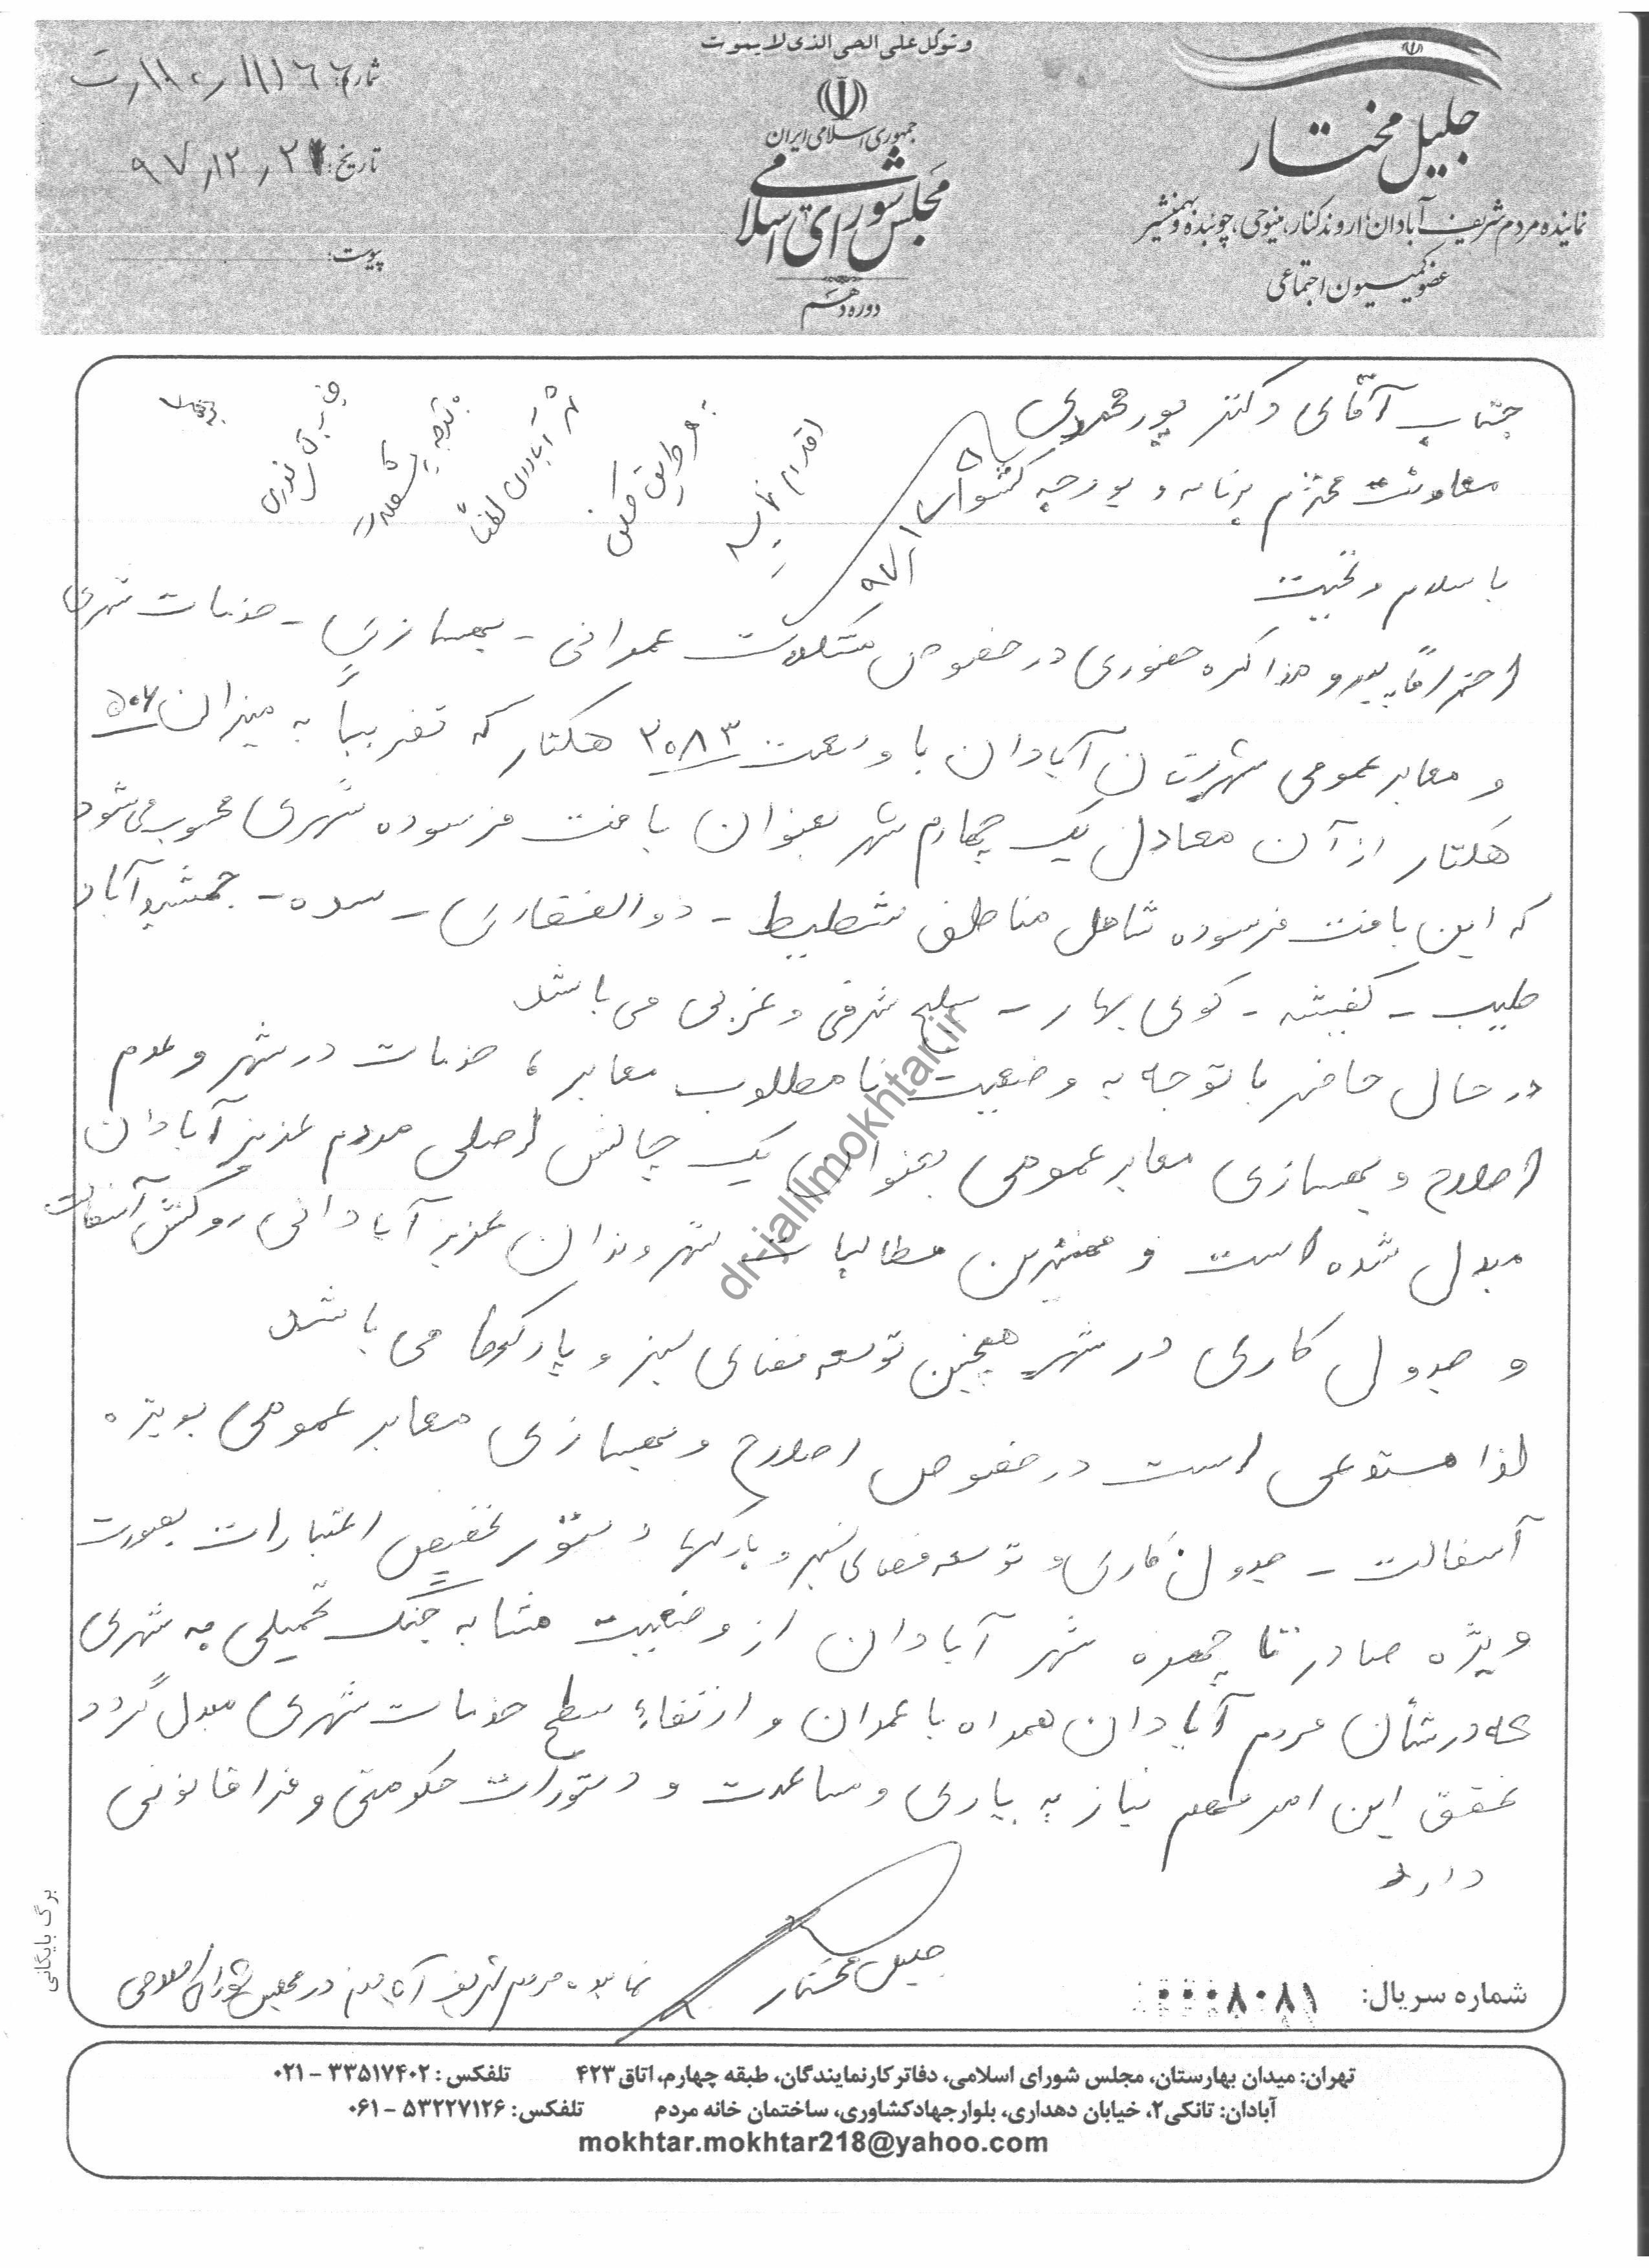 وتوکل علی الحی الذی لا یموت
جمهوری اسلامی ایران
مجلس شورای اسلامی
دوره دهم
جلیل مختار
نماینده مردم شریف آبادان، اروندکنار، مینوحی، چوئبده و بهمنشیر
عضو کمیسیون اجتماعی
شماره:
تاریخ: ۹۷/۱۲/
پیوست:
جناب آقای دکتر پورمحمدی
معاونت محترم برنامه و بودجه کشور
با سلام و تحیت
احتراماً پیرو مذاکره حضوری در خصوص مشکلات عمرانی - بهسازی - خدمات شهری
و معابر عمومی شهرستان آبادان با وسعت ۲۰۸۳ هکتار که تقریباً به میزان ۵۰۶
هکتار از آن معادل یک چهارم شهر بعنوان بافت فرسوده شهری محسوب می‌شود
که این بافت فرسوده شامل مناطق شطیط - ذوالفقاری - سده - جمشیدآباد
طیب - کفیشه - کوی بهار - سلیچ شرقی و غربی می باشد
در حال حاضر با توجه به وضعیت نامطلوب معابر، خدمات در شهر و عدم
اصلاح و بهسازی معابر عمومی بعنوان یک چالش اصلی مردم عزیز آبادان
مبدل شده است و مهمترین مطالبات شهروندان عزیز آبادانی روکش آسفالت
و جدول کاری در شهر همچنین توسعه فضای سبز و پارکها می باشد
لذا مستدعی است در خصوص اصلاح و بهسازی معابر عمومی بویژه
آسفالت - جدول کاری و توسعه فضای سبز و پارکها دستور تخصیص اعتبارات بصورت
ویژه صادر تا چهره شهر آبادان از وضعیت مشابه جنگ تحمیلی به شهری
که در شأن مردم آبادان همراه با عمران و ارتقاء سطح خدمات شهری مبدل گردد
تحقق این امر مهم نیاز به یاری و مساعدت و دستورات حکومتی و فراقانونی
دارد
جلیل مختار
نماینده مردم شریف آبادان در مجلس شورای اسلامی
جناب آقای نوذری
با توجه به مشکلات
شهر آبادان لطفاً
به هر طریق ممکن
اقدام نمایید
dr-jalilmokhtar.ir
برگ بایگانی
شماره سریال: ۰۰۰۸۰۸۱
تهران: میدان بهارستان، مجلس شورای اسلامی، دفاتر کار نمایندگان، طبقه چهارم، اتاق ۴۲۳ تلفکس: ۳۳۵۱۷۴۰۲ - ۰۲۱
آبادان: تانکی۲، خیابان دهداری، بلوار جهاد کشاوری، ساختمان خانه مردم تلفکس: ۵۳۲۲۷۱۲۶ - ۰۶۱
mokhtar.mokhtar218@yahoo.com